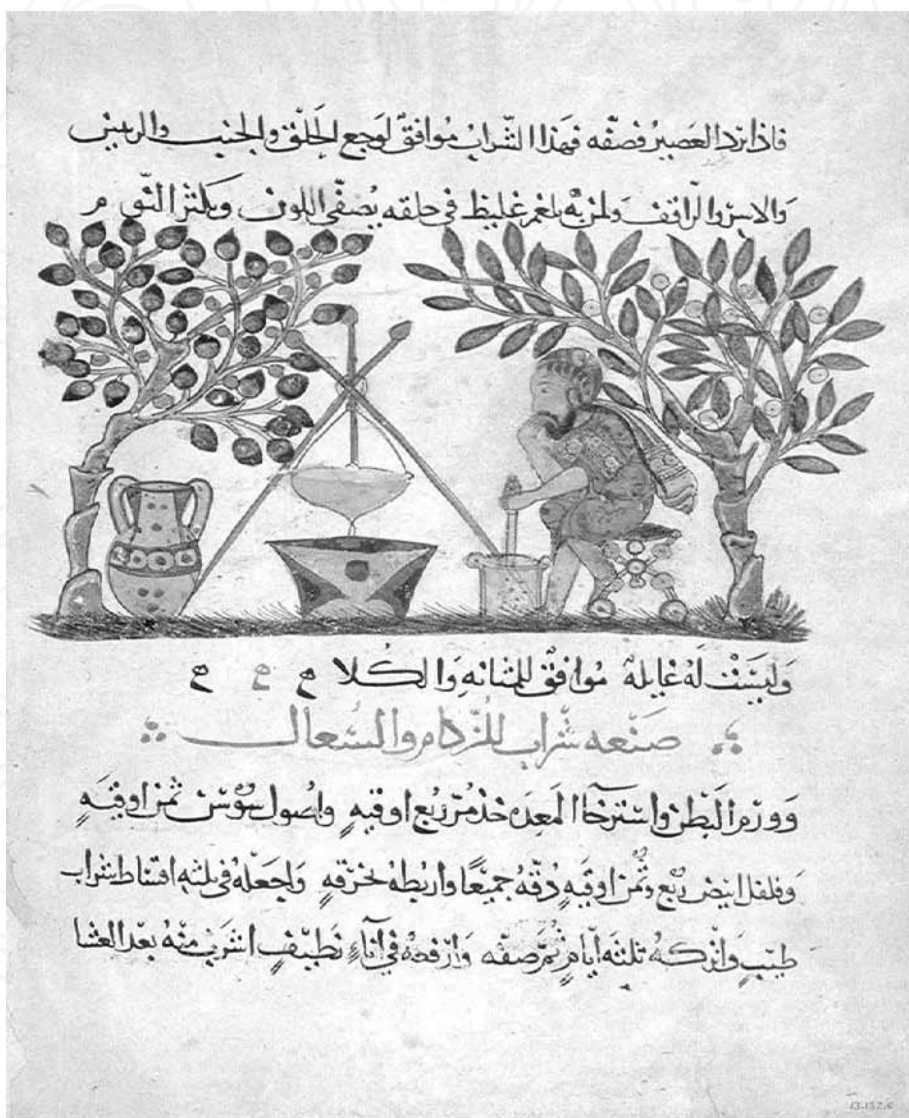 فاذا برد العصير فصفّه فهذا الشّراب موافقٌ لوجع الحَلْق والجنب والريتين
وَليسَتْ لهُ غايلة مُوافقٌ للمثانه وَالكُلا ح ح ح
صَنْعه شراب للزُّكام والسُّعال
وَوَرَم البَطن واسترخا المعِدَه خذ مُرّ رُبع اوقيهٍ واصُول سُوْسَن ثمن اوقيَهٍ
وَفلفل ابيض رُبع وَثمن اوقيهٍ دُقّهُ جميعًا واربطهُ بخرقهٍ وَاجعَلهُ في ثلثه اقساط شراب
طيّبٍ وَاتركهُ ثلثه أيّامٍ ثمّ صَفّه وَارْفعهُ في اناءٍ نَظيفٍ اشربْ منْهُ بعد العشا
13.152.6